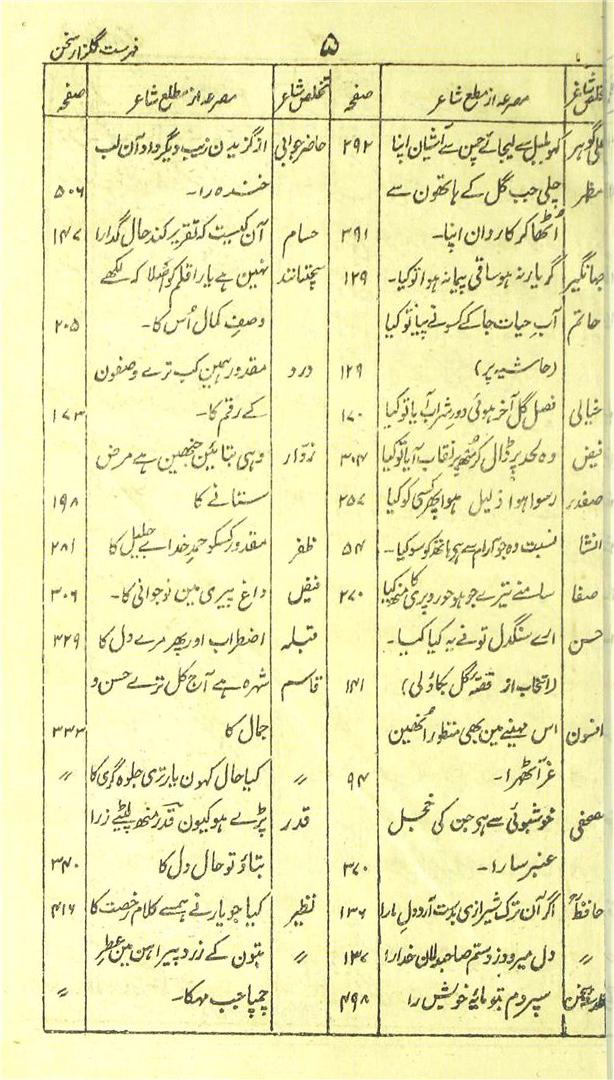 ۵
فہرست گلزار سخن
تخلص شاعر مصرعہ از مطلع شاعر صفحہ تخلص شاعر مصرعہ از مطلع شاعر صفحہ
علی گوہر کہو بلبل سے لیجائے چمن سے آشیان اپنا ۲۹۲
مظہر چلی جب گل کے ہاتھون سے
اُٹھا کر کاروان اپنا۔ ۳۹۱
جہانگیر گر یار نہ ہو ساقی پیمانہ ہوا تو کیا۔ ۱۲۹
حاتم آب حیات جا کے کسو نے پیا تو کیا
(حاشیہ پر) ۱۲۹
خیالی فصل گل آخر ہوئی دور شراب آیا تو کیا ۱۷۰
فیض وہ لحد پر ڈال کر منھ پر نقاب آیا تو کیا ۳۰۴
صفدر رسوا ہوا ذلیل ہوا پھر کسی کو کیا ۲۵۷
انشا نسبت وہ جو آرام سے ہی ہاتھ کو سو کیا۔ ۵۴
صفا سامنے تیرے جو ہو حور و پری کا منھ کیا ۲۷۰
حسن اے سنگدل تو نے یہ کیا کیا۔
(انتخاب از قصہ گل بکاؤلی) ۱۴۱
افسون اس مہینے مین بھی منظور اُنھین
غر آٹھرا۔ ۹۴
مصحفی خوشبوئی سے ہی جن کی خجل
عنبر سارا۔ ۳۷۰
حافظ اگر آن ترک شیرازی بدست آرد دل ما را ۱۳۶
〃 دل میرود ز دستم صاحبدلان خدارا ۱۳۷
سپردم بتو مایۂ خویش را ۴۹۸
حاضر جوابی از گزیدن زیب دیگر داد آن لب
خندہ را۔ ۵۰۶
حسام آن کیست کہ تقریر کند حال گدا را ۱۴۷
سچنانند نہین ہے یارا قلم کو اصلا کہ لکھے
وصف کمال اُس کا۔ ۲۰۵
درد مقدور ہمین کب ترے وصفون
کے رقم کا۔ ۱۷۳
زوّار وہی بتائین جنھین ہے مرض
ستانے کا ۱۹۸
ظفر مقدور کسکو حمد خدائے جلیل کا ۲۸۱
فیض داغ پیری مین نوجوانی کا۔ ۳۰۶
قبلہ اضطراب اور پھر مرے دل کا ۳۲۹
قاسم شہرہ ہے آج کل ترے حسن و
جمال کا ۳۳۳
〃 کیا حال کہون یار تری جلوہ گری کا 〃
قدر پڑے ہو کیون قدر منھ لپیٹے زرا
بتاؤ تو حال دل کا ۳۴۰
نظیر کیا جو یار نے ہمسے کلام رخصت کا ۴۱۶
〃 بتون کے زرد پیراہن مین عطر
چمپا جب مہکا۔ 〃